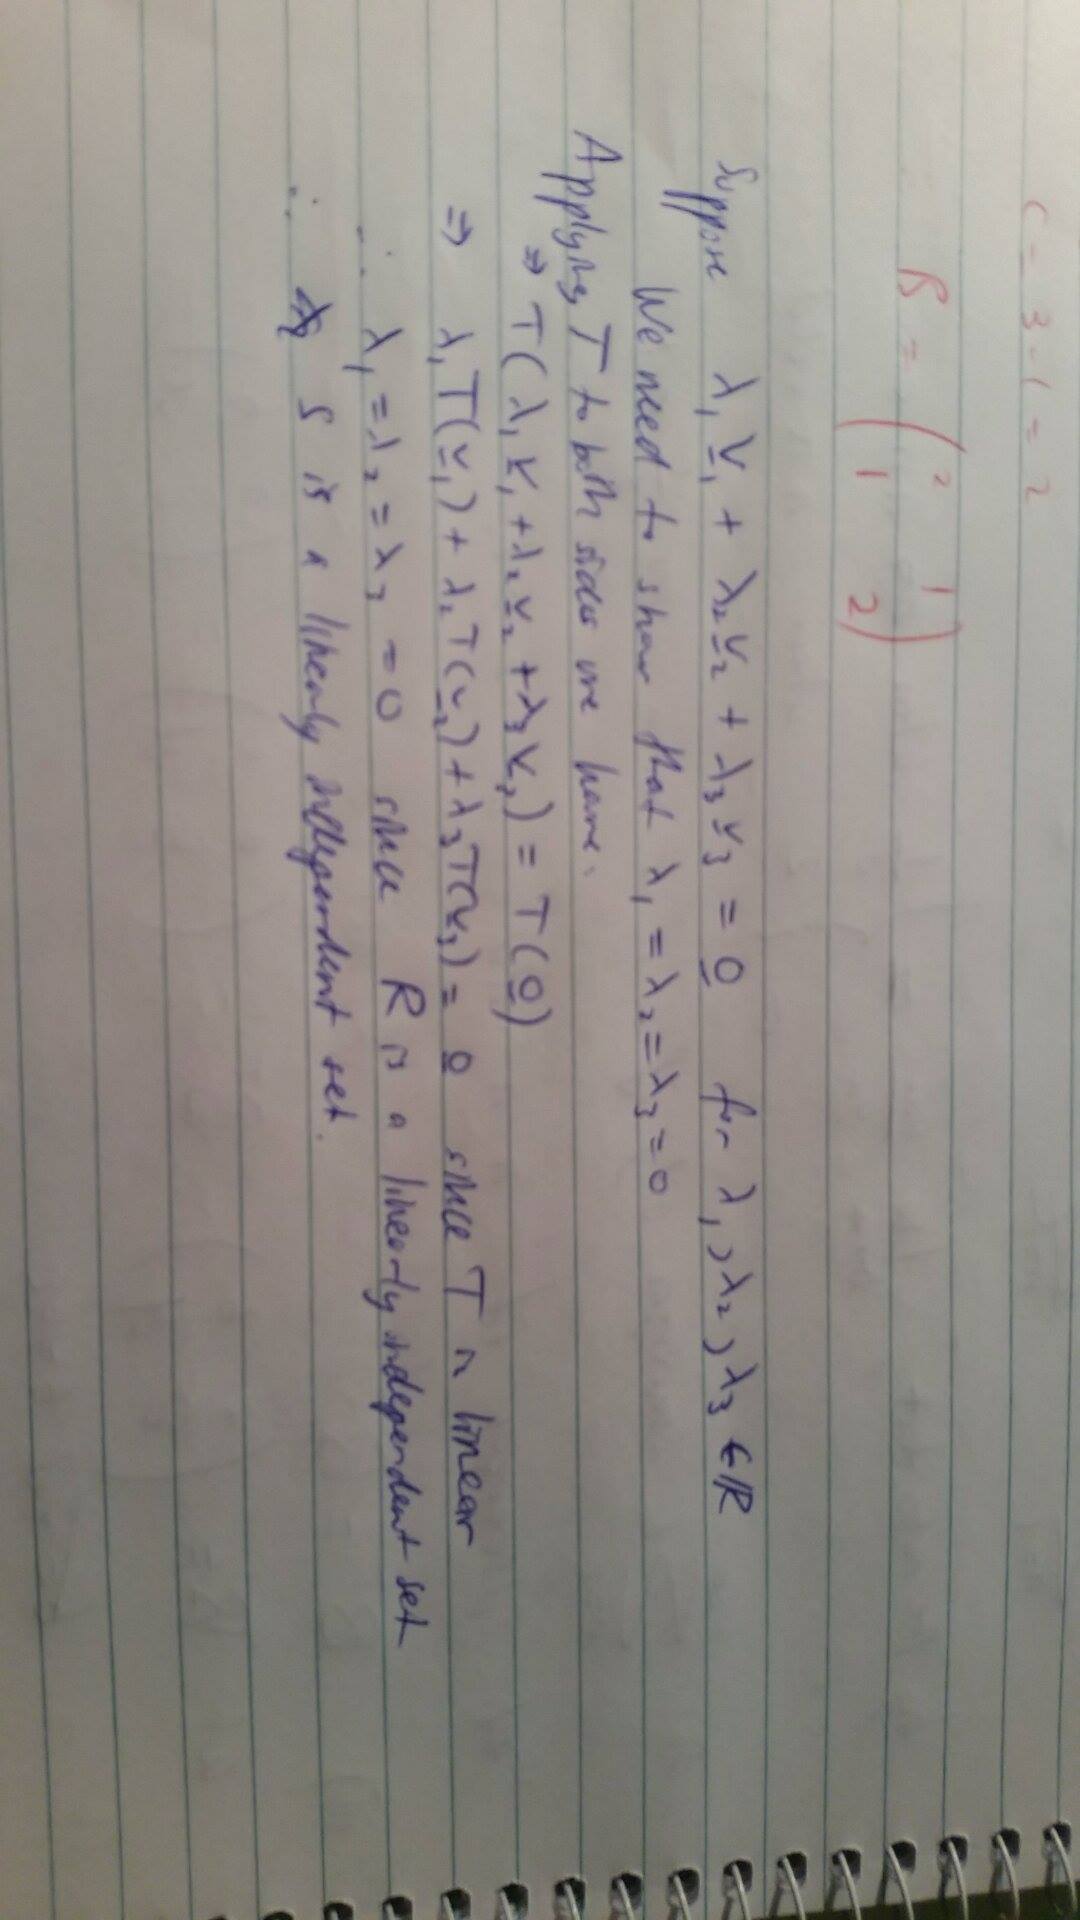 C = 3-1 = 2
B = ( 2 1
1 2 )
Suppose λ₁v̲₁ + λ₂v̲₂ + λ₃v̲₃ = 0̲ for λ₁, λ₂, λ₃ ∈ ℝ
We need to show that λ₁ = λ₂ = λ₃ = 0
Applying T to both sides we have:
⇒ T(λ₁v̲₁ + λ₂v̲₂ + λ₃v̲₃) = T(0̲)
⇒ λ₁T(v̲₁) + λ₂T(v̲₂) + λ₃T(v̲₃) = 0̲ since T is linear
∴ λ₁ = λ₂ = λ₃ = 0 since R is a linearly independent set
∴ S is a linearly independent set.